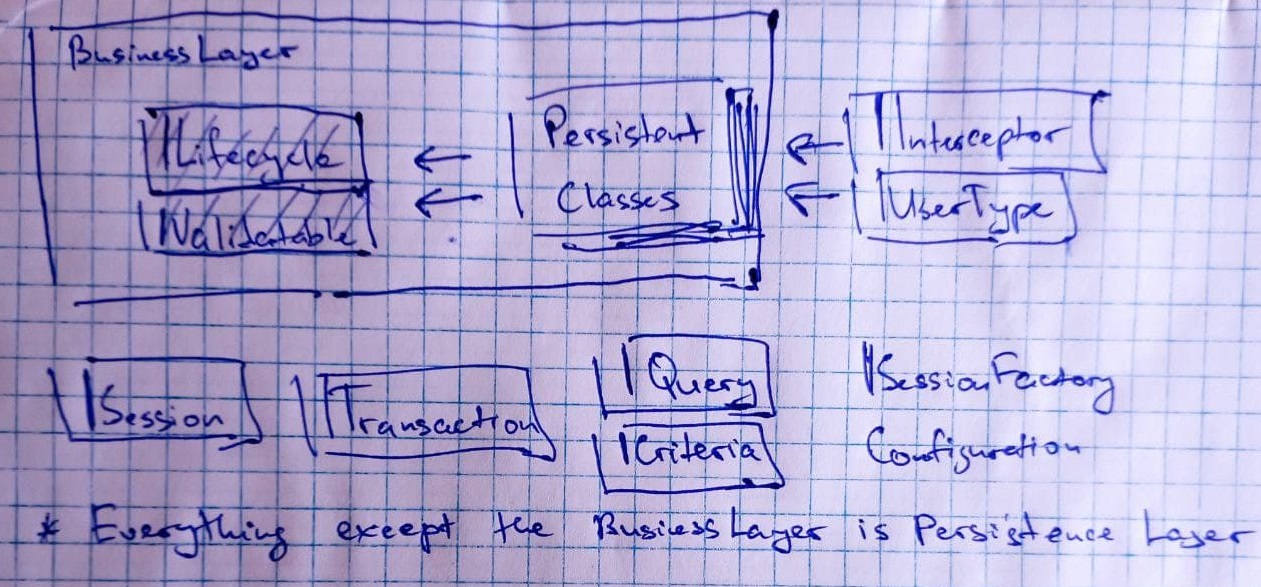 Business Layer
ILifecycle
IValidatable
Persistent
Classes
IInterceptor
IUserType
ISession
ITransaction
IQuery
ICriteria
ISessionFactory
Configuration
* Everything except the Business Layer is Persistence Layer